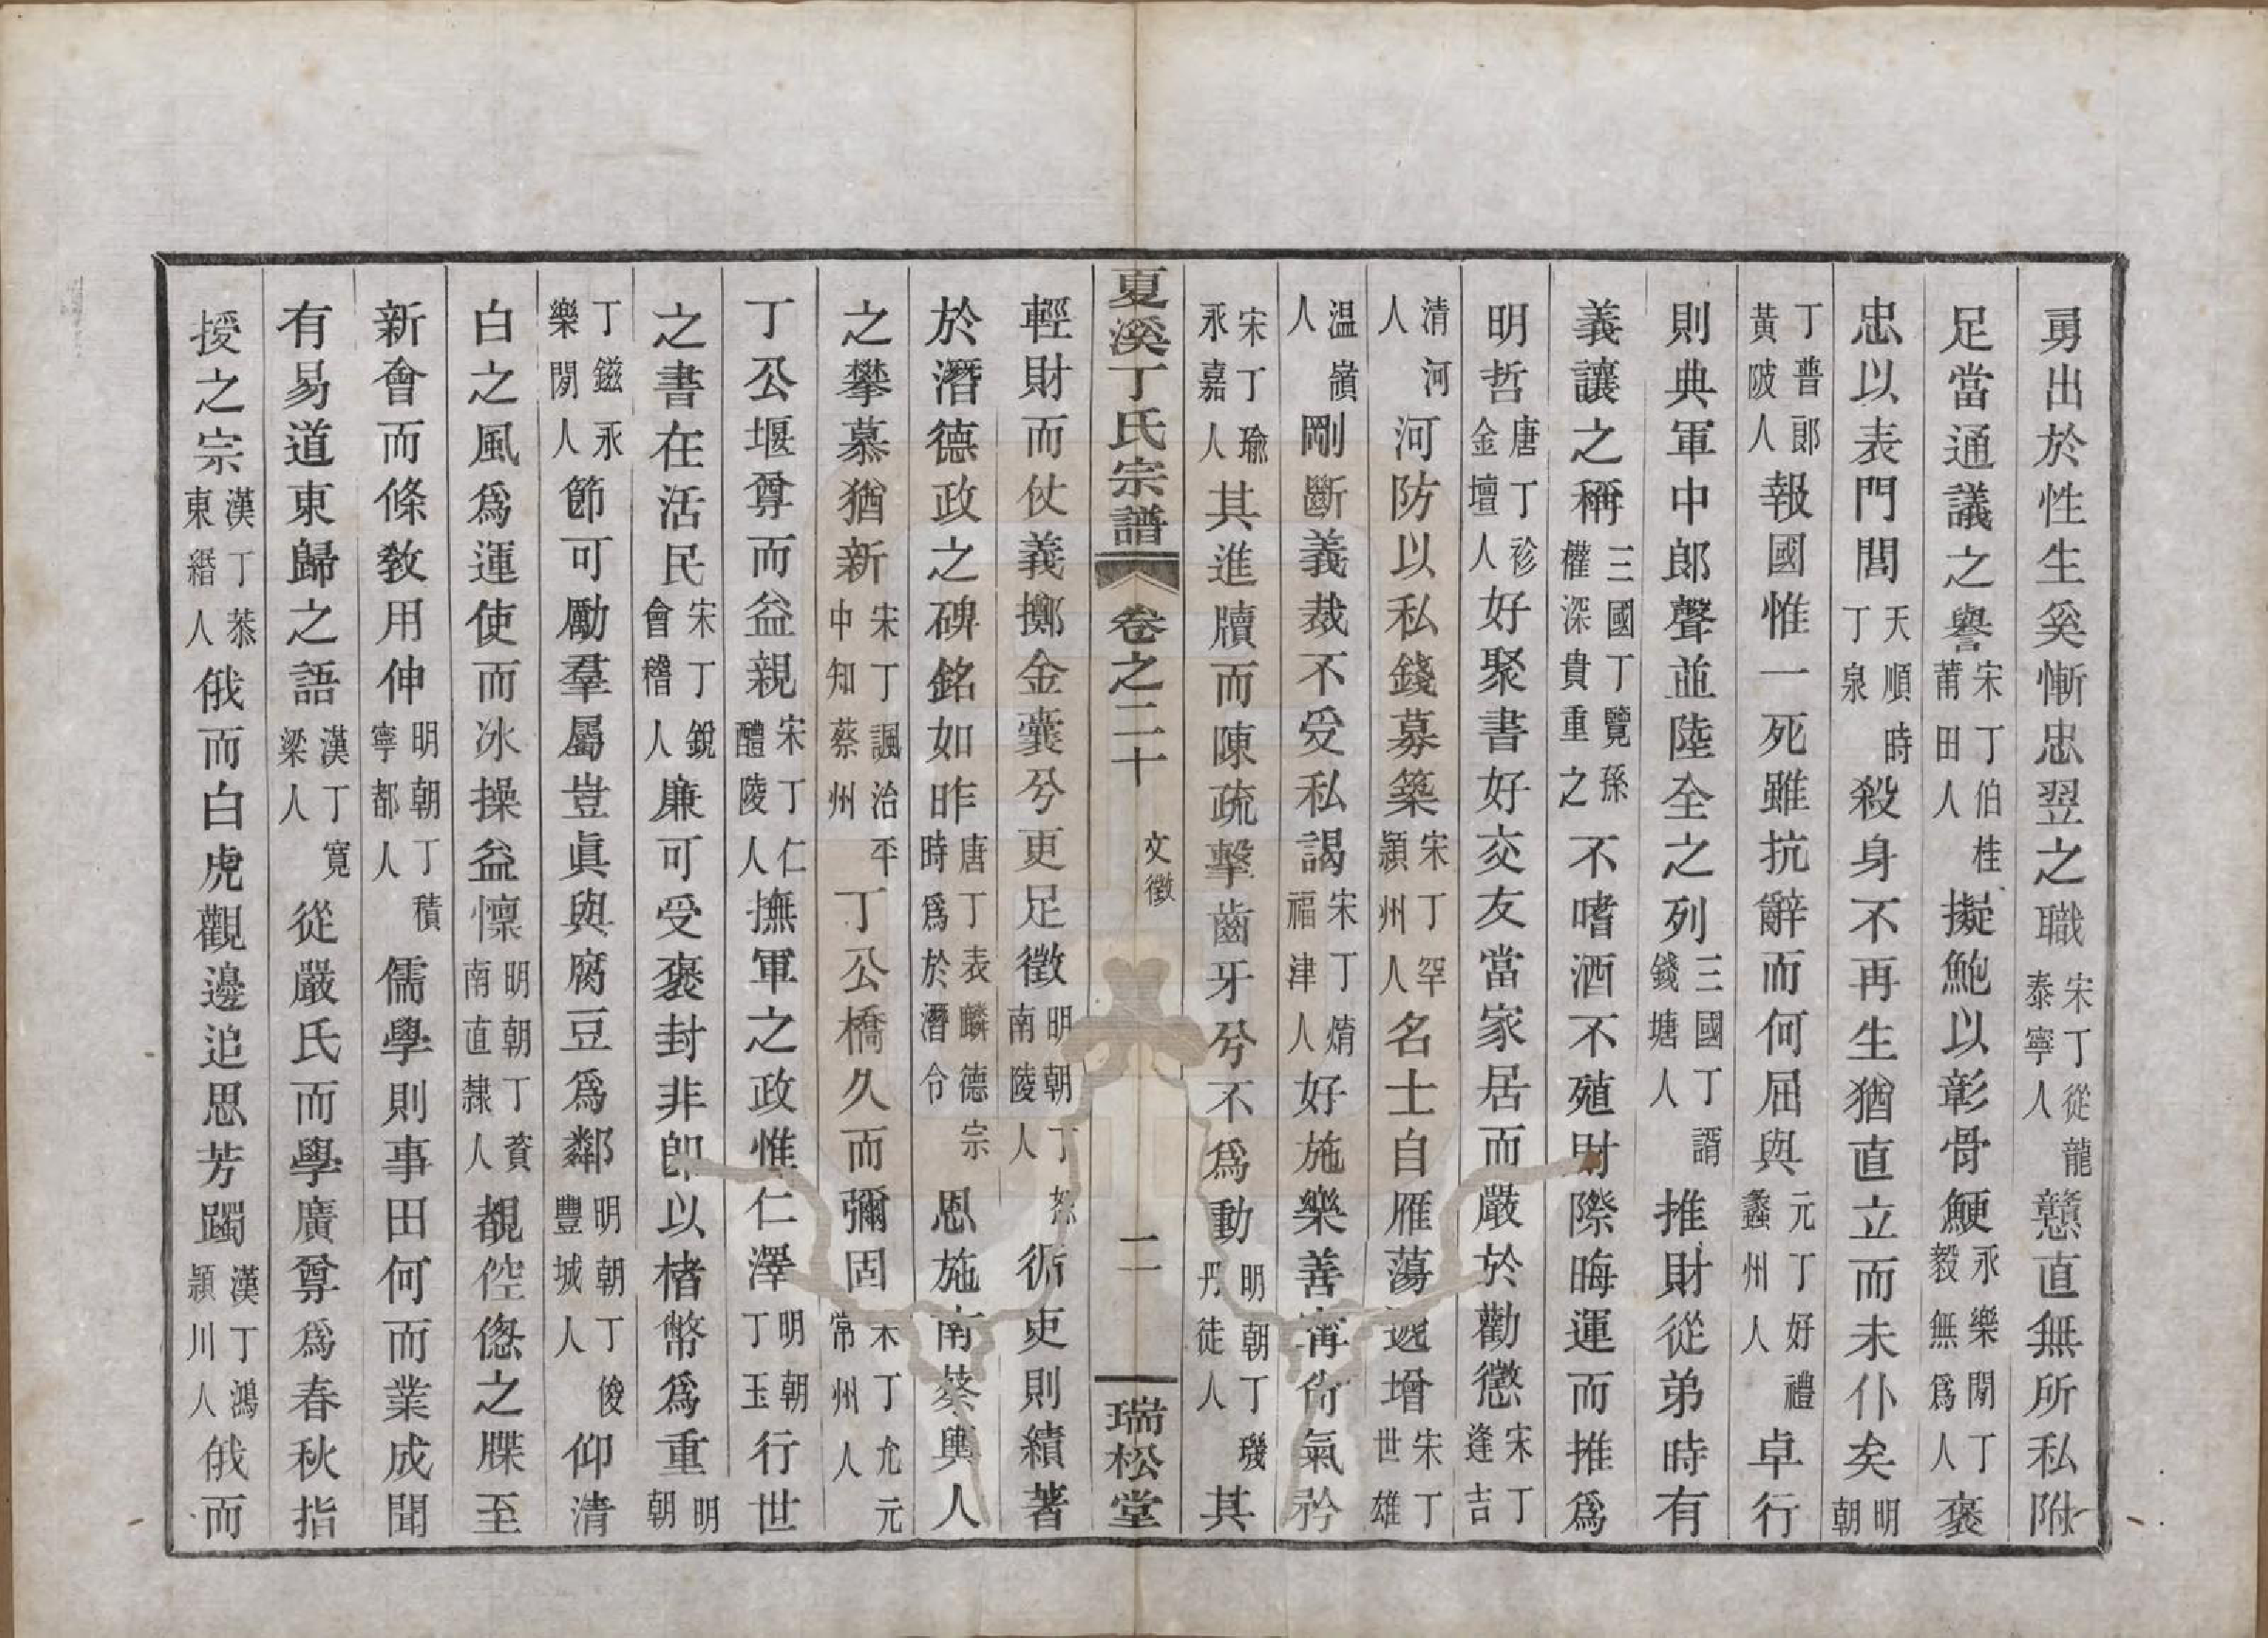 勇出於性生奚慚忠翌之職宋丁從龍泰寧人戇直無所私附
足當通議之譽宋丁伯桂莆田人擬鮑以彰骨鯁永樂閒丁毅無爲人褒
忠以表門閭天順時丁泉殺身不再生猶直立而未仆矣明朝
丁普郎黃陂人報國惟一死雖抗辭而何屈與元丁好禮蠡州人卓行
則典軍中郎聲並陸全之列三國丁諝錢塘人推財從弟時有
義讓之稱三國丁覽孫權深貴重之不嗜酒不殖財際晦運而推爲
明哲唐丁袗金壇人好聚書好交友當家居而嚴於勸懲宋丁逢吉
清河人河防以私錢募築宋丁罕潁州人名士自雁蕩遞增宋丁世雄
温嶺人剛斷義裁不受私謁宋丁熵福津人好施樂善講尚氣矜
宋丁瑜永嘉人其進牘而陳疏擊齒牙兮不爲動明朝丁璣丹徒人其
夏溪丁氏宗譜 卷之二十 文徵 二 瑞松堂
輕財而仗義擲金囊兮更足徵明朝丁恕南陵人循吏則績著
於潛德政之碑銘如昨唐丁表麟德宗時爲於潛令恩施南蔡輿人
之攀慕猶新宋丁諷治平中知蔡州丁公橋久而彌固宋丁允元常州人
丁公堰尊而益親宋丁仁醴陵人撫軍之政惟仁澤明朝丁玉行世
之書在活民宋丁銳會稽人廉可受褒封非卽以楮幣爲重明朝
丁鎡永樂閒人節可勵羣屬豈眞與腐豆爲鄰明朝丁俊豐城人仰清
白之風爲運使而冰操益懍明朝丁賚南直隸人覩倥傯之牒至
新會而條教用伸明朝丁積寧都人儒學則事田何而業成聞
有易道東歸之語漢丁寬梁人從嚴氏而學廣尊爲春秋指
授之宗漢丁恭東緡人俄而白虎觀邊追思芳躅漢丁鴻潁川人俄而